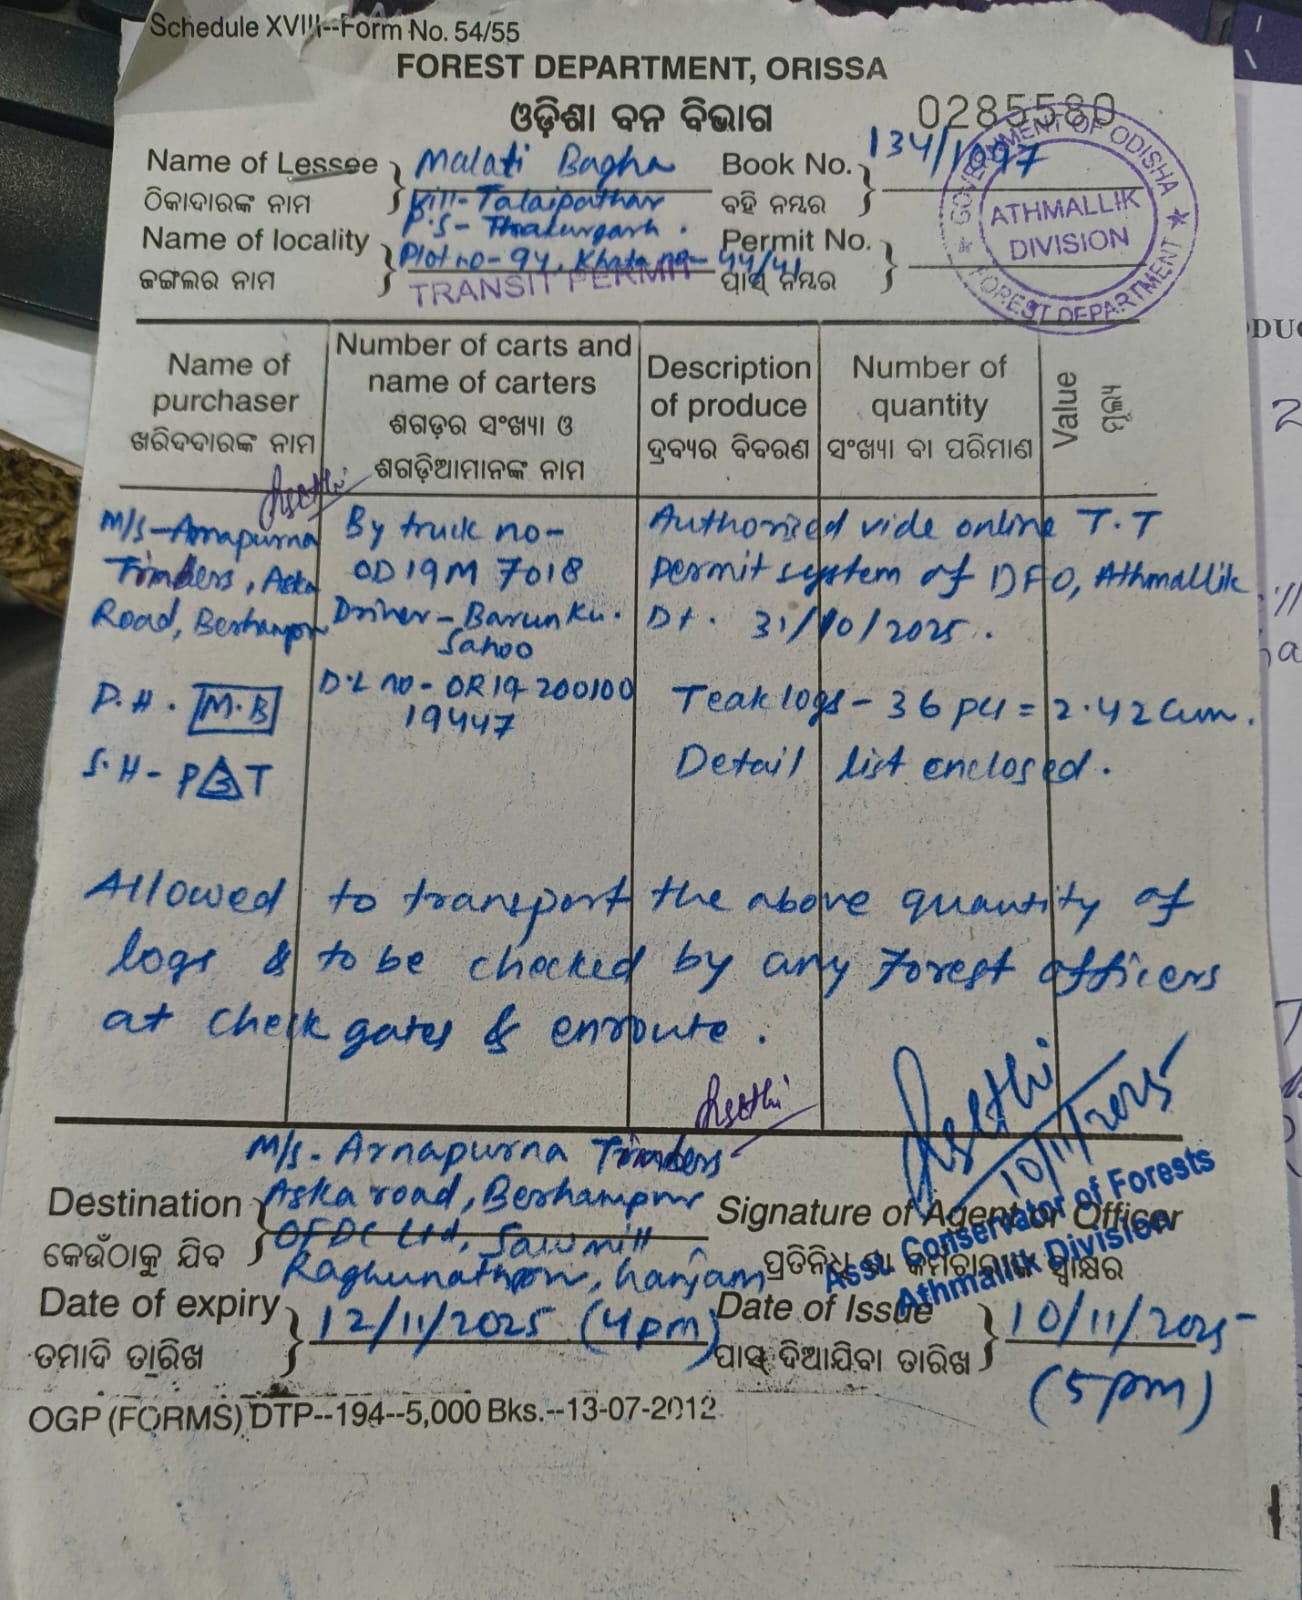 Schedule XVIII--Form No. 54/55
FOREST DEPARTMENT, ORISSA
ଓଡ଼ିଶା ବନ ବିଭାଗ
0285580
Name of Lessee } Malati Bagha
ଠିକାଦାରଙ୍କ ନାମ
Vill- Talaipathar
P.S- Thakurgarh.
Book No. } 134/1997
ବହି ନମ୍ବର
Name of locality } Plot no- 94, Khata no- 44/41
ଜଙ୍ଗଲର ନାମ
TRANSIT PERMIT
Permit No. }
ପାସ୍ ନମ୍ବର
GOVERNMENT OF ODISHA
ATHMALLIK
DIVISION
FOREST DEPARTMENT
Name of purchaser
ଖରିଦଦାରଙ୍କ ନାମ
Number of carts and name of carters
ଶଗଡ଼ର ସଂଖ୍ୟା ଓ
ଶଗଡ଼ିଆମାନଙ୍କ ନାମ
Description of produce
ଦ୍ରବ୍ୟର ବିବରଣ
Number of quantity
ସଂଖ୍ୟା ବା ପରିମାଣ
Value
ମୂଲ୍ୟ
M/s- Arnapurna
Timbers, Aska
Road, Berhampur
P.H. M.B
S.H- P 3 T
By truck no-
OD19M 7018
Driver- Barun Ku.
Sahoo
D.L no- OR19 200100
19447
Authorised vide online T.T
permit system of DFO, Athmallik
Dt. 31/10/2025.
Teak logs- 36 pcs = 2.42 cum.
Detail list enclosed.
Allowed to transport the above quantity of
logs & to be checked by any Forest officers
at check gates & enroute.
M/s- Arnapurna Timbers
Destination } Aska road, Berhampur
କେଉଁଠାକୁ ଯିବ
OFDC Ltd, Sawmill
Raghunathpur, Ganjam
10/11/2025
Signature of Agent or Officer
ପ୍ରତିନିଧି ବା କର୍ମଚାରୀଙ୍କ ସ୍ୱାକ୍ଷର
Asst. Conservator of Forests
Athmallik Division
Date of expiry } 12/11/2025 (4pm)
ତମାଦି ତାରିଖ
Date of Issue } 10/11/2025
ପାସ୍ ଦିଆଯିବା ତାରିଖ
(5pm)
OGP (FORMS) DTP--194--5,000 Bks.--13-07-2012